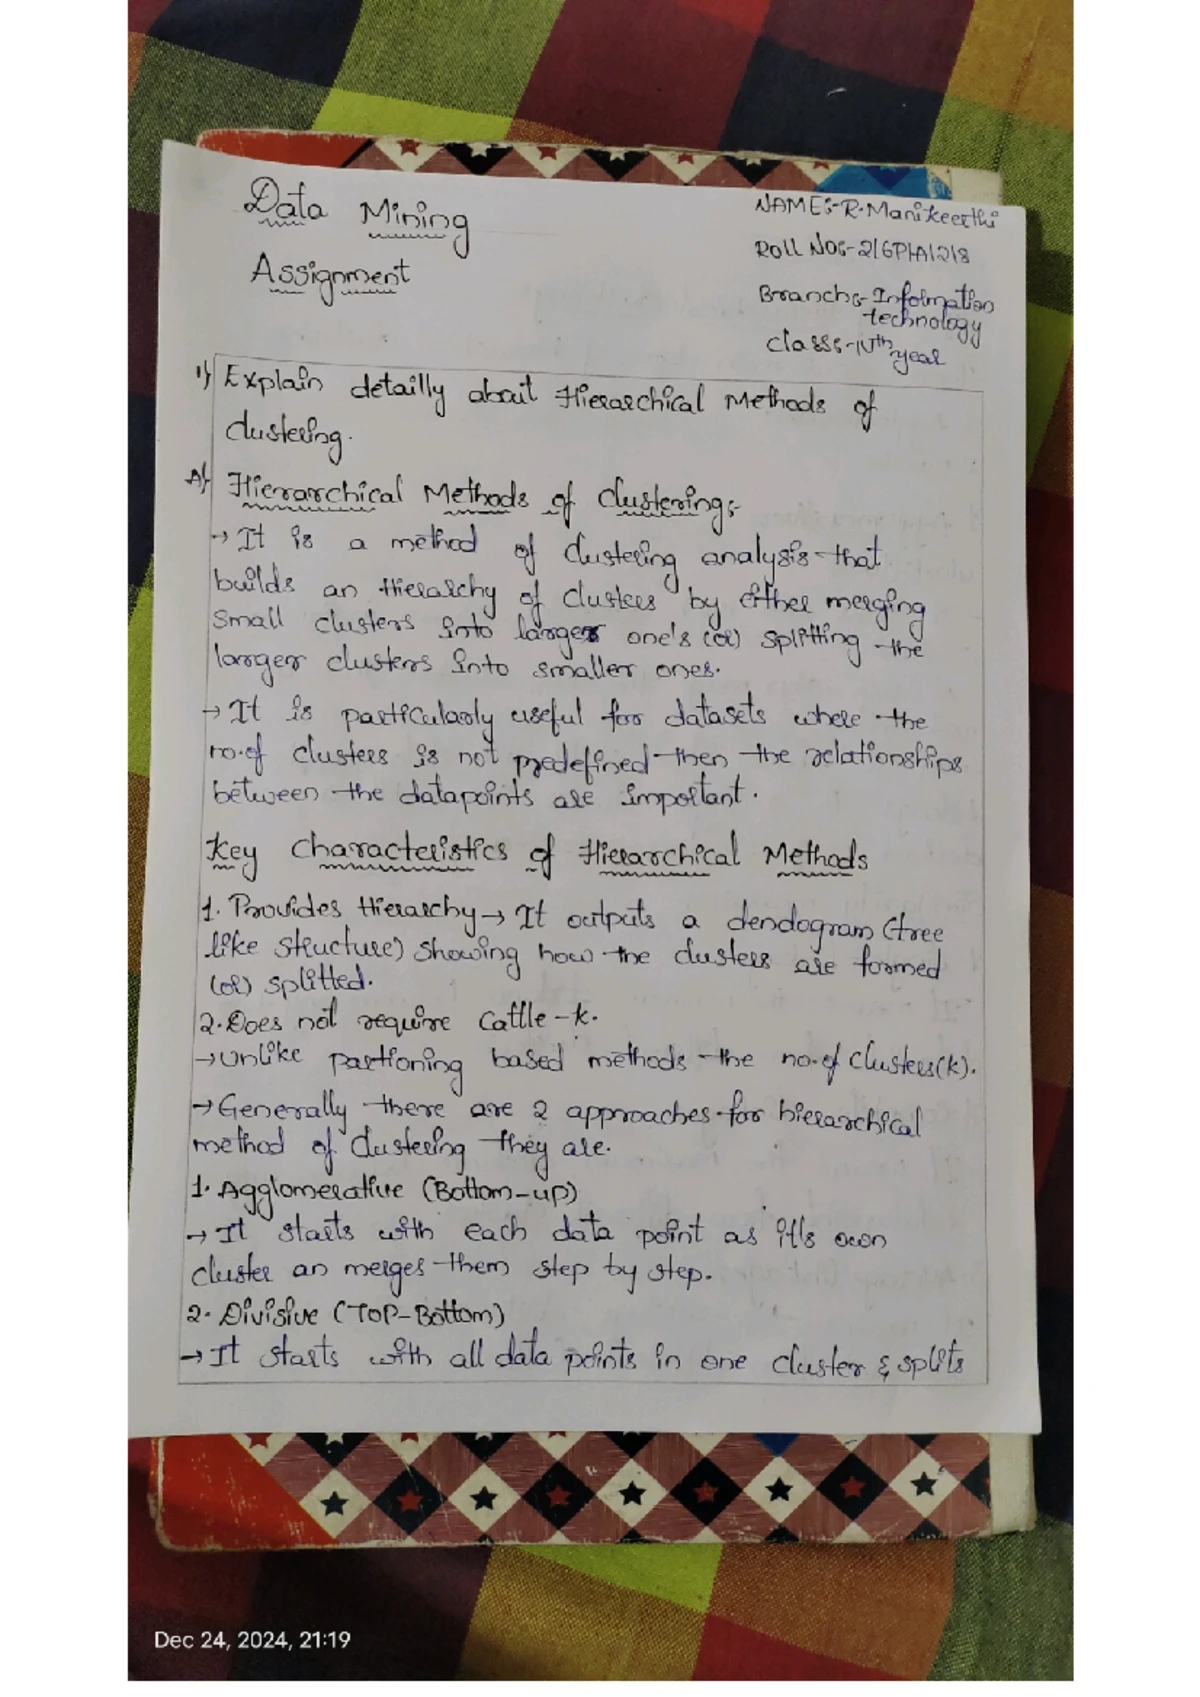 Data Mining
Assignment
NAME:-R.Manikeerthi
Roll No:-216P1A1218
Branch:-Information
technology
Class:-IVth year
1) Explain detailly about Hierarchical Methods of
clustering.
A) Hierarchical Methods of Clustering:-
→ It is a method of clustering analysis that
builds an Hierarchy of clusters by either merging
small clusters into larger one's (or) splitting the
larger clusters into smaller ones.
→ It is particularly useful for datasets where the
no.of clusters is not predefined then the relationships
between the datapoints are important.
Key Characteristics of Hierarchical Methods
1. Provides Hierarchy → It outputs a dendogram (tree
like structure) showing how the clusters are formed
(or) splitted.
2. Does not require Cattle -k.
→ Unlike partioning based methods the no.of clusters(k).
→ Generally there are 2 approaches for hierarchical
method of clustering they are.
1. Agglomerative (Bottom-up)
→ It starts with each data point as it's own
cluster an merges them step by step.
2. Divisive (TOP-Bottom)
→ It starts with all data points in one cluster & splits
Dec 24, 2024, 21:19